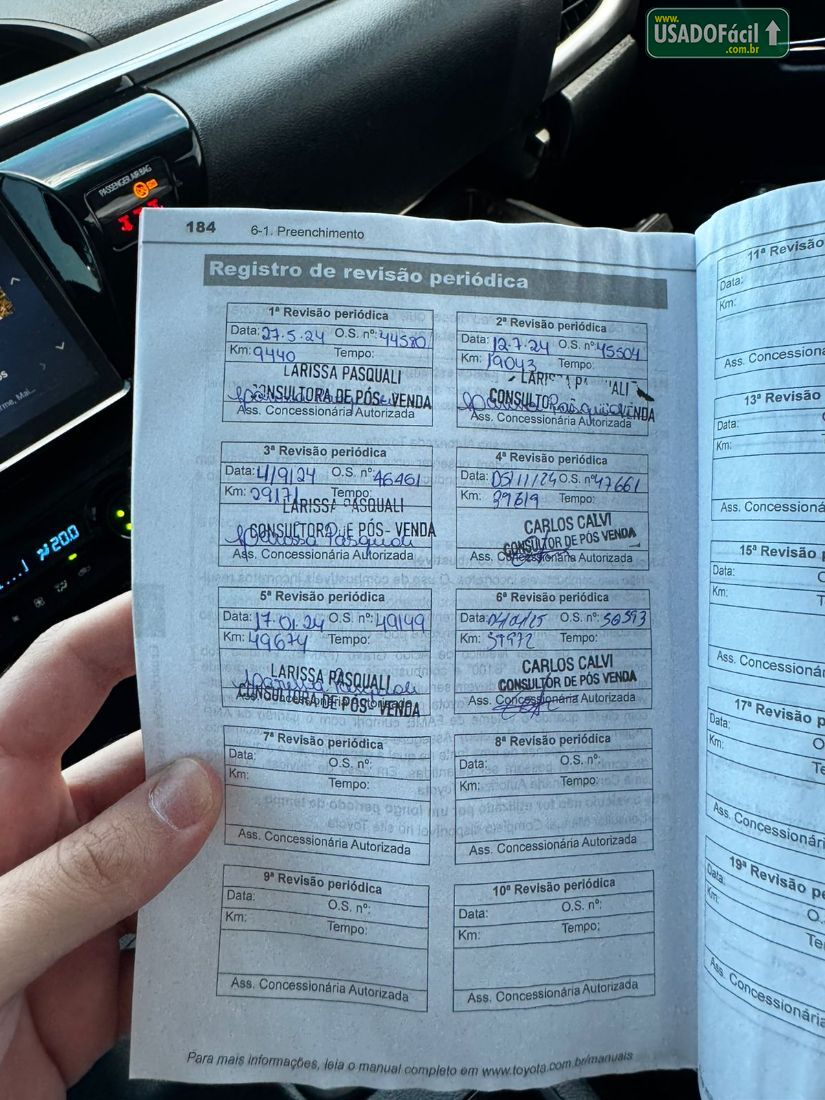 www.
USADOFácil
.com.br
PASSENGER AIRBAG
20.0
184 6-1. Preenchimento
Registro de revisão periódica
1ª Revisão periódica
Data: 27.5.24 O.S. nº: 44580
Km: 9440 Tempo:
LARISSA PASQUALI
CONSULTORA DE PÓS-VENDA
Ass. Concessionária Autorizada
2ª Revisão periódica
Data: 12.7.24 O.S. nº: 45504
Km: 19043 Tempo:
Ass. Concessionária Autorizada
3ª Revisão periódica
Data: 4/9/24 O.S. nº: 46461
Km: 29171 Tempo:
LARISSA PASQUALI
CONSULTORA DE PÓS-VENDA
Ass. Concessionária Autorizada
4ª Revisão periódica
Data: 05/11/24 O.S. nº: 47661
Km: 39619 Tempo:
CARLOS CALVI
CONSULTOR DE PÓS VENDA
Ass. Concessionária Autorizada
5ª Revisão periódica
Data: 17.01.24 O.S. nº: 49149
Km: 49674 Tempo:
LARISSA PASQUALI
CONSULTORA DE PÓS-VENDA
Ass. Concessionária Autorizada
6ª Revisão periódica
Data: O.S. nº: 50593
Km: 59972 Tempo:
CARLOS CALVI
CONSULTOR DE PÓS VENDA
Ass. Concessionária Autorizada
7ª Revisão periódica
Data: O.S. nº:
Km: Tempo:
Ass. Concessionária Autorizada
8ª Revisão periódica
Data: O.S. nº:
Km: Tempo:
Ass. Concessionária Autorizada
9ª Revisão periódica
Data: O.S. nº:
Km: Tempo:
Ass. Concessionária Autorizada
10ª Revisão periódica
Data: O.S. nº:
Km: Tempo:
Ass. Concessionária Autorizada
Para mais informações, leia o manual completo em www.toyota.com.br/manuais
11ª Revisão
Data:
Km:
Ass. Concessionária
13ª Revisão
Data:
Km:
Ass. Concessionária
15ª Revisão
Data:
Km:
Ass. Concessionária
17ª Revisão
Data:
Km:
Ass. Concessionária
19ª Revisão
Data:
Km:
Ass. Concessionária